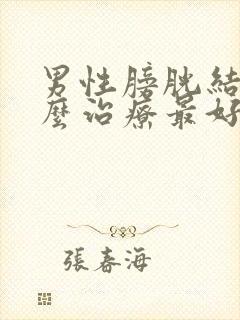 男性膀胱結
麼治療最好
張春海